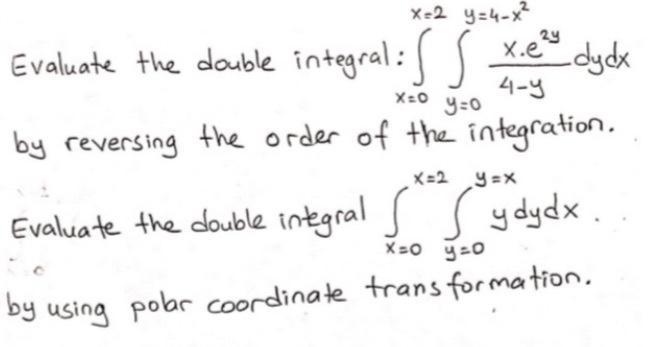 Evaluate the double integral: ∫_{x=0}^{x=2} ∫_{y=0}^{y=4-x²} x.e^{2y}/(4-y) dydx
by reversing the order of the integration.
Evaluate the double integral ∫_{x=0}^{x=2} ∫_{y=0}^{y=x} y dydx.
by using polar coordinate transformation.